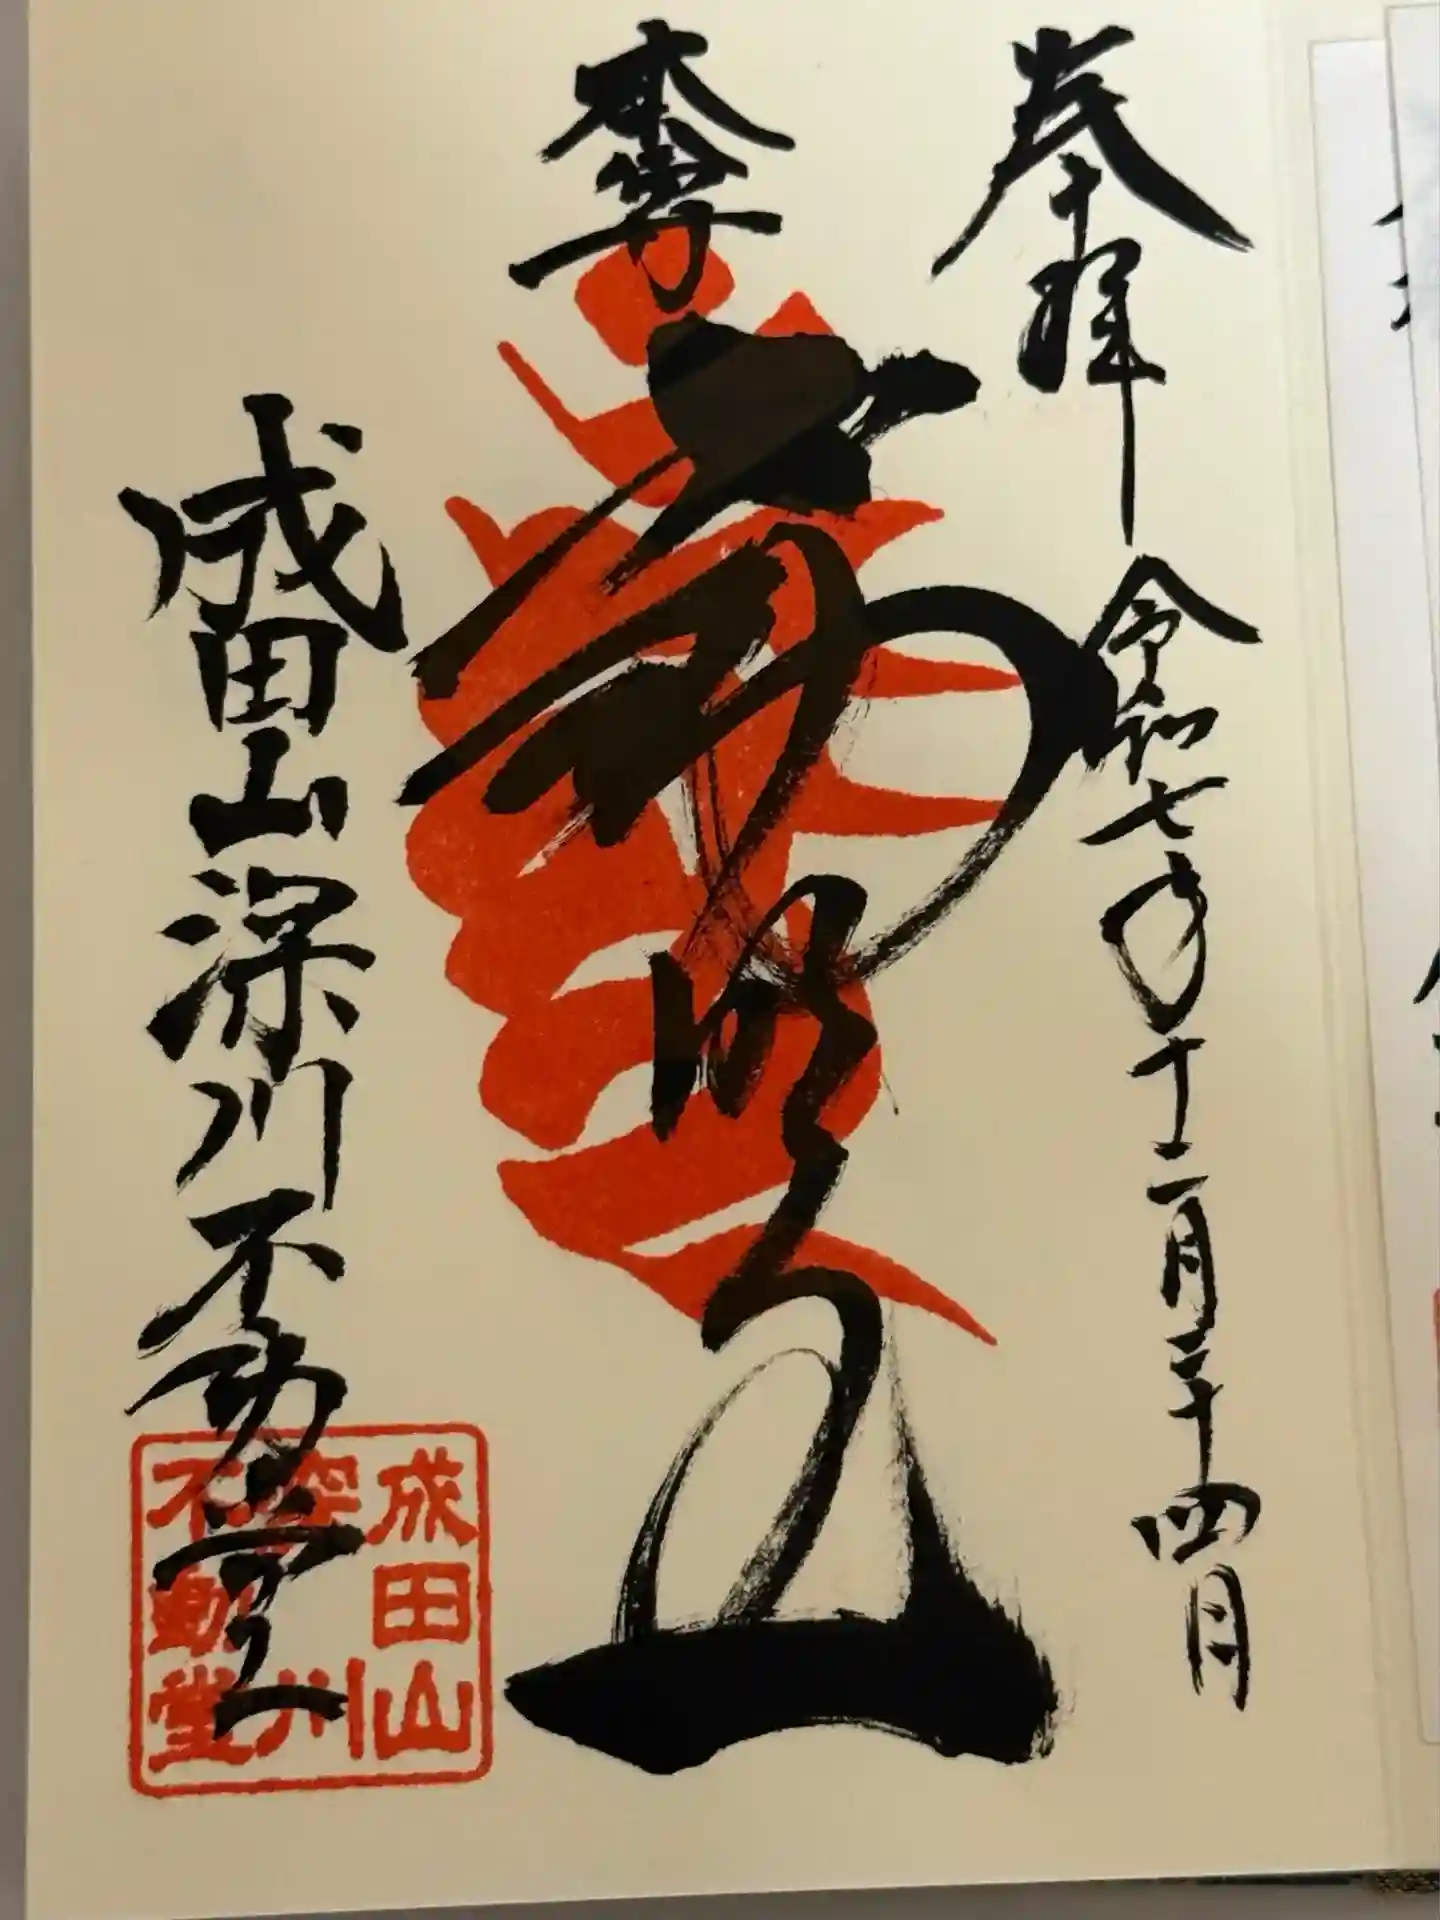 奉拝
令和七年十二月二十四日
本尊
不動明王
成田山深川不動堂
成田山
深川
不動堂